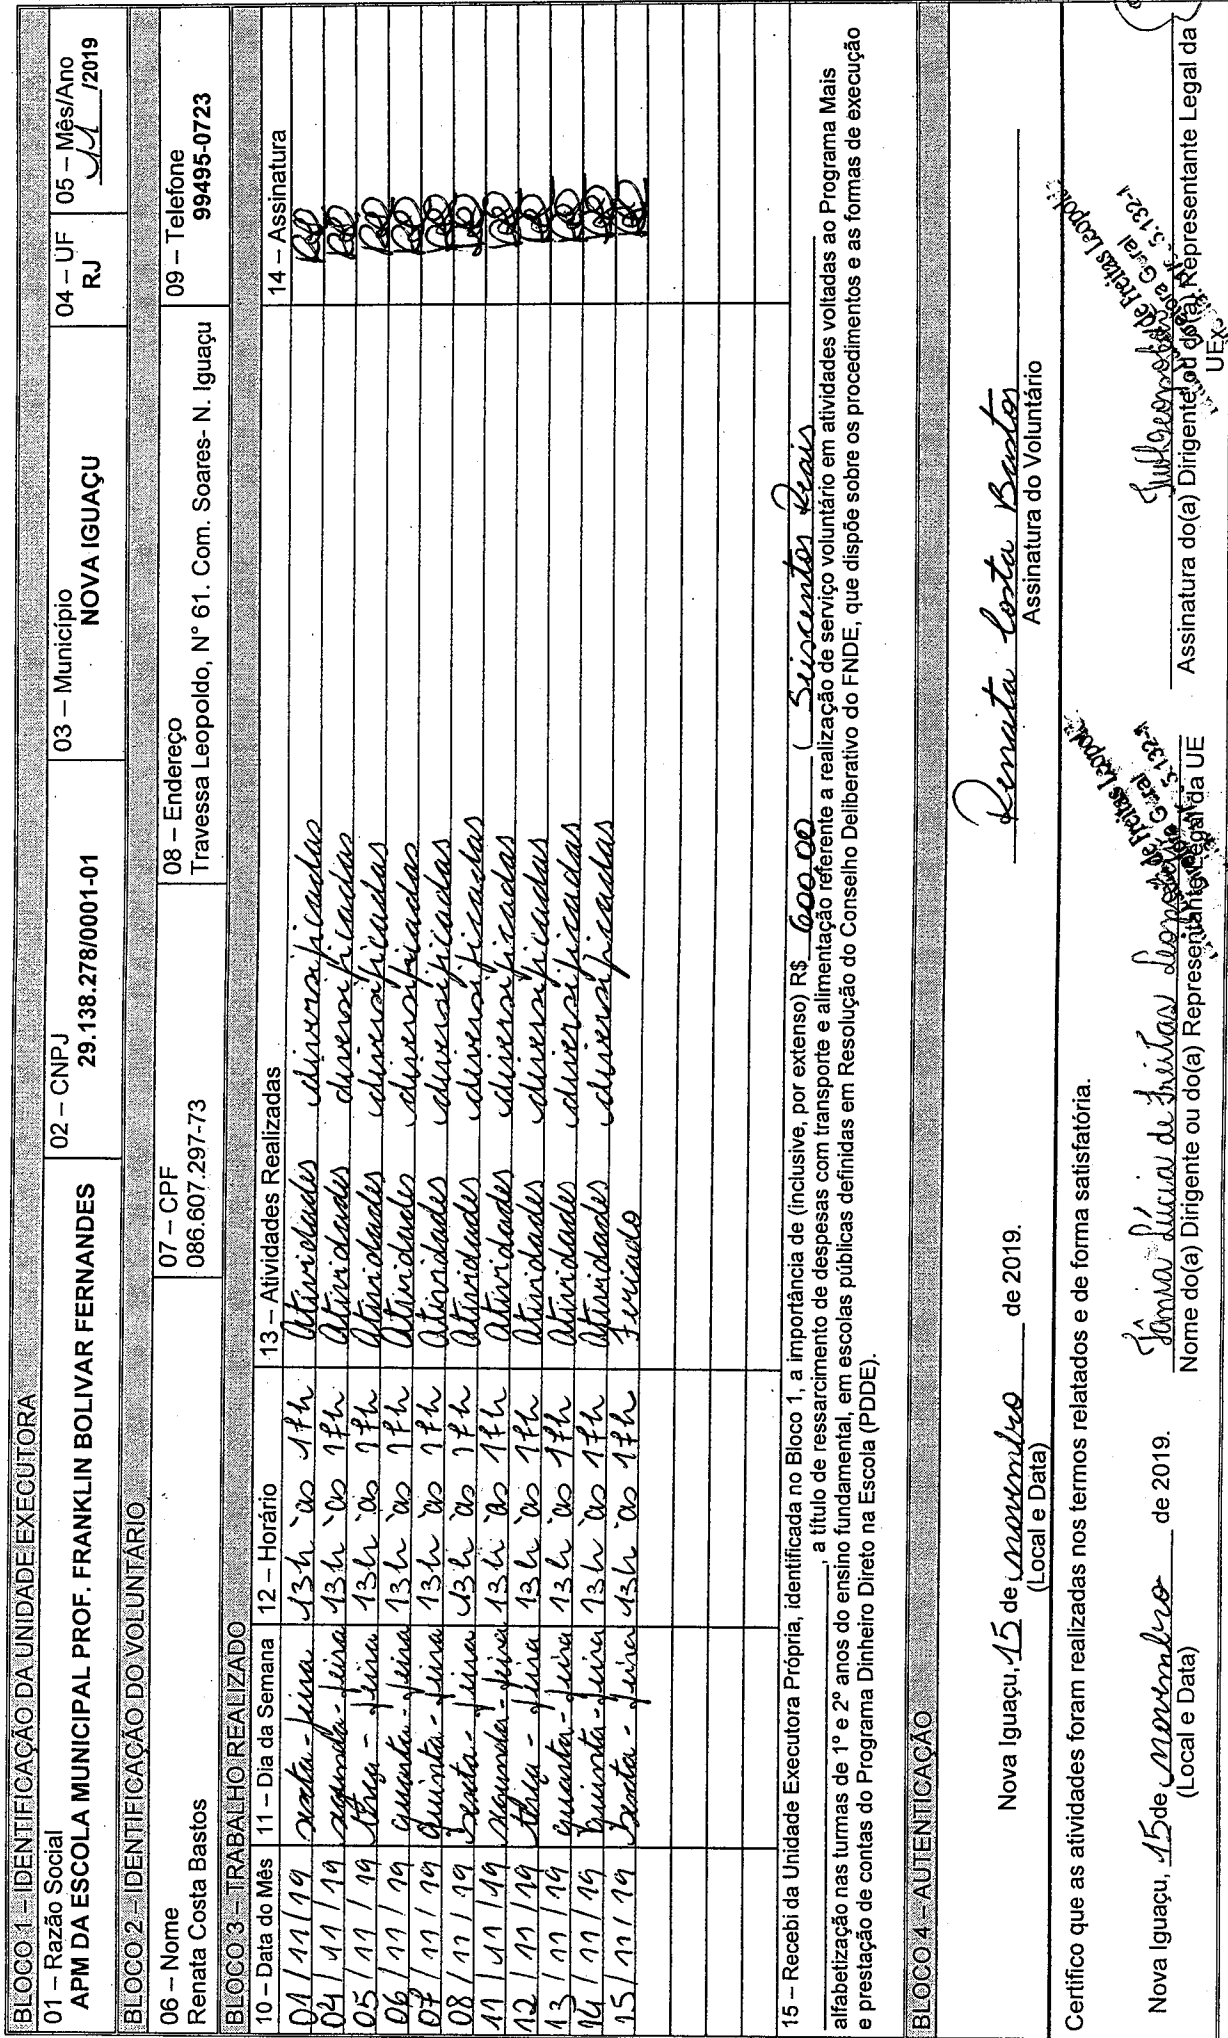 BLOCO 1 – IDENTIFICAÇÃO DA UNIDADE EXECUTORA
01 – Razão Social
APM DA ESCOLA MUNICIPAL PROF. FRANKLIN BOLIVAR FERNANDES
02 – CNPJ
29.138.278/0001-01
03 – Município
NOVA IGUAÇU
04 – UF
RJ
05 – Mês/Ano
11 /2019
BLOCO 2 – IDENTIFICAÇÃO DO VOLUNTÁRIO
06 – Nome
Renata Costa Bastos
07 – CPF
086.607.297-73
08 – Endereço
Travessa Leopoldo, N° 61. Com. Soares- N. Iguaçu
09 – Telefone
99495-0723
BLOCO 3 – TRABALHO REALIZADO
10 – Data do Mês 11 – Dia da Semana 12 – Horário 13 – Atividades Realizadas 14 – Assinatura
01/11/19 sexta-feira 13h às 17h Atividades diversificadas
04/11/19 segunda-feira 13h às 17h Atividades diversificadas
05/11/19 terça-feira 13h às 17h Atividades diversificadas
06/11/19 quarta-feira 13h às 17h Atividades diversificadas
07/11/19 quinta-feira 13h às 17h Atividades diversificadas
08/11/19 sexta-feira 13h às 17h Atividades diversificadas
11/11/19 segunda-feira 13h às 17h Atividades diversificadas
12/11/19 terça-feira 13h às 17h Atividades diversificadas
13/11/19 quarta-feira 13h às 17h Atividades diversificadas
14/11/19 quinta-feira 13h às 17h Atividades diversificadas
15/11/19 sexta-feira 13h às 17h Feriado
15 – Recebi da Unidade Executora Própria, identificada no Bloco 1, a importância de (inclusive, por extenso) R$ 600,00 ( Seiscentos Reais
, a título de ressarcimento de despesas com transporte e alimentação referente a realização de serviço voluntário em atividades voltadas ao Programa Mais
alfabetização nas turmas de 1º e 2º anos do ensino fundamental, em escolas públicas definidas em Resolução do Conselho Deliberativo do FNDE, que dispõe sobre os procedimentos e as formas de execução
e prestação de contas do Programa Dinheiro Direto na Escola (PDDE).
BLOCO 4 – AUTENTICAÇÃO
Nova Iguaçu, 15 de novembro de 2019.
(Local e Data)
Renata Costa Bastos
Assinatura do Voluntário
Certifico que as atividades foram realizadas nos termos relatados e de forma satisfatória.
Nova Iguaçu, 15 de novembro de 2019.
(Local e Data)
Tânia Lúcia de Freitas Leopoldo
Nome do(a) Dirigente ou do(a) Representante Legal da UE
de Freitas Leopol
Geral
5.132-1
Assinatura do(a) Dirigente ou do(a) Representante Legal da
UEx
de Freitas Leopol
Diretora Geral
5.132-1